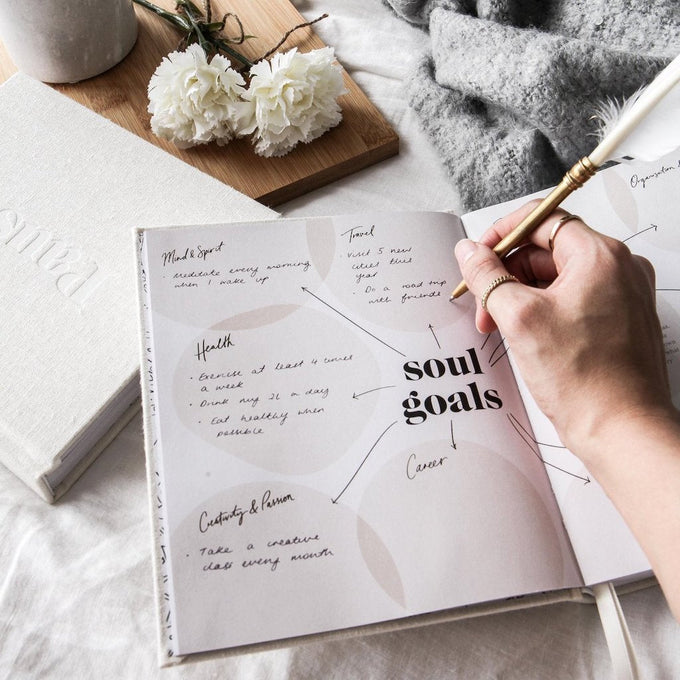 Mind & Spirit
· Meditate every morning
when I wake up
Travel
· Visit 5 new
cities this
year
· Do a road trip
with friends
Health
· Exercise at least 4 times
a week
· Drink 2L a day
· Eat healthy when
possible
soul
goals
Career
Creativity & Passion
· Take a creative
class every month
Organisation &